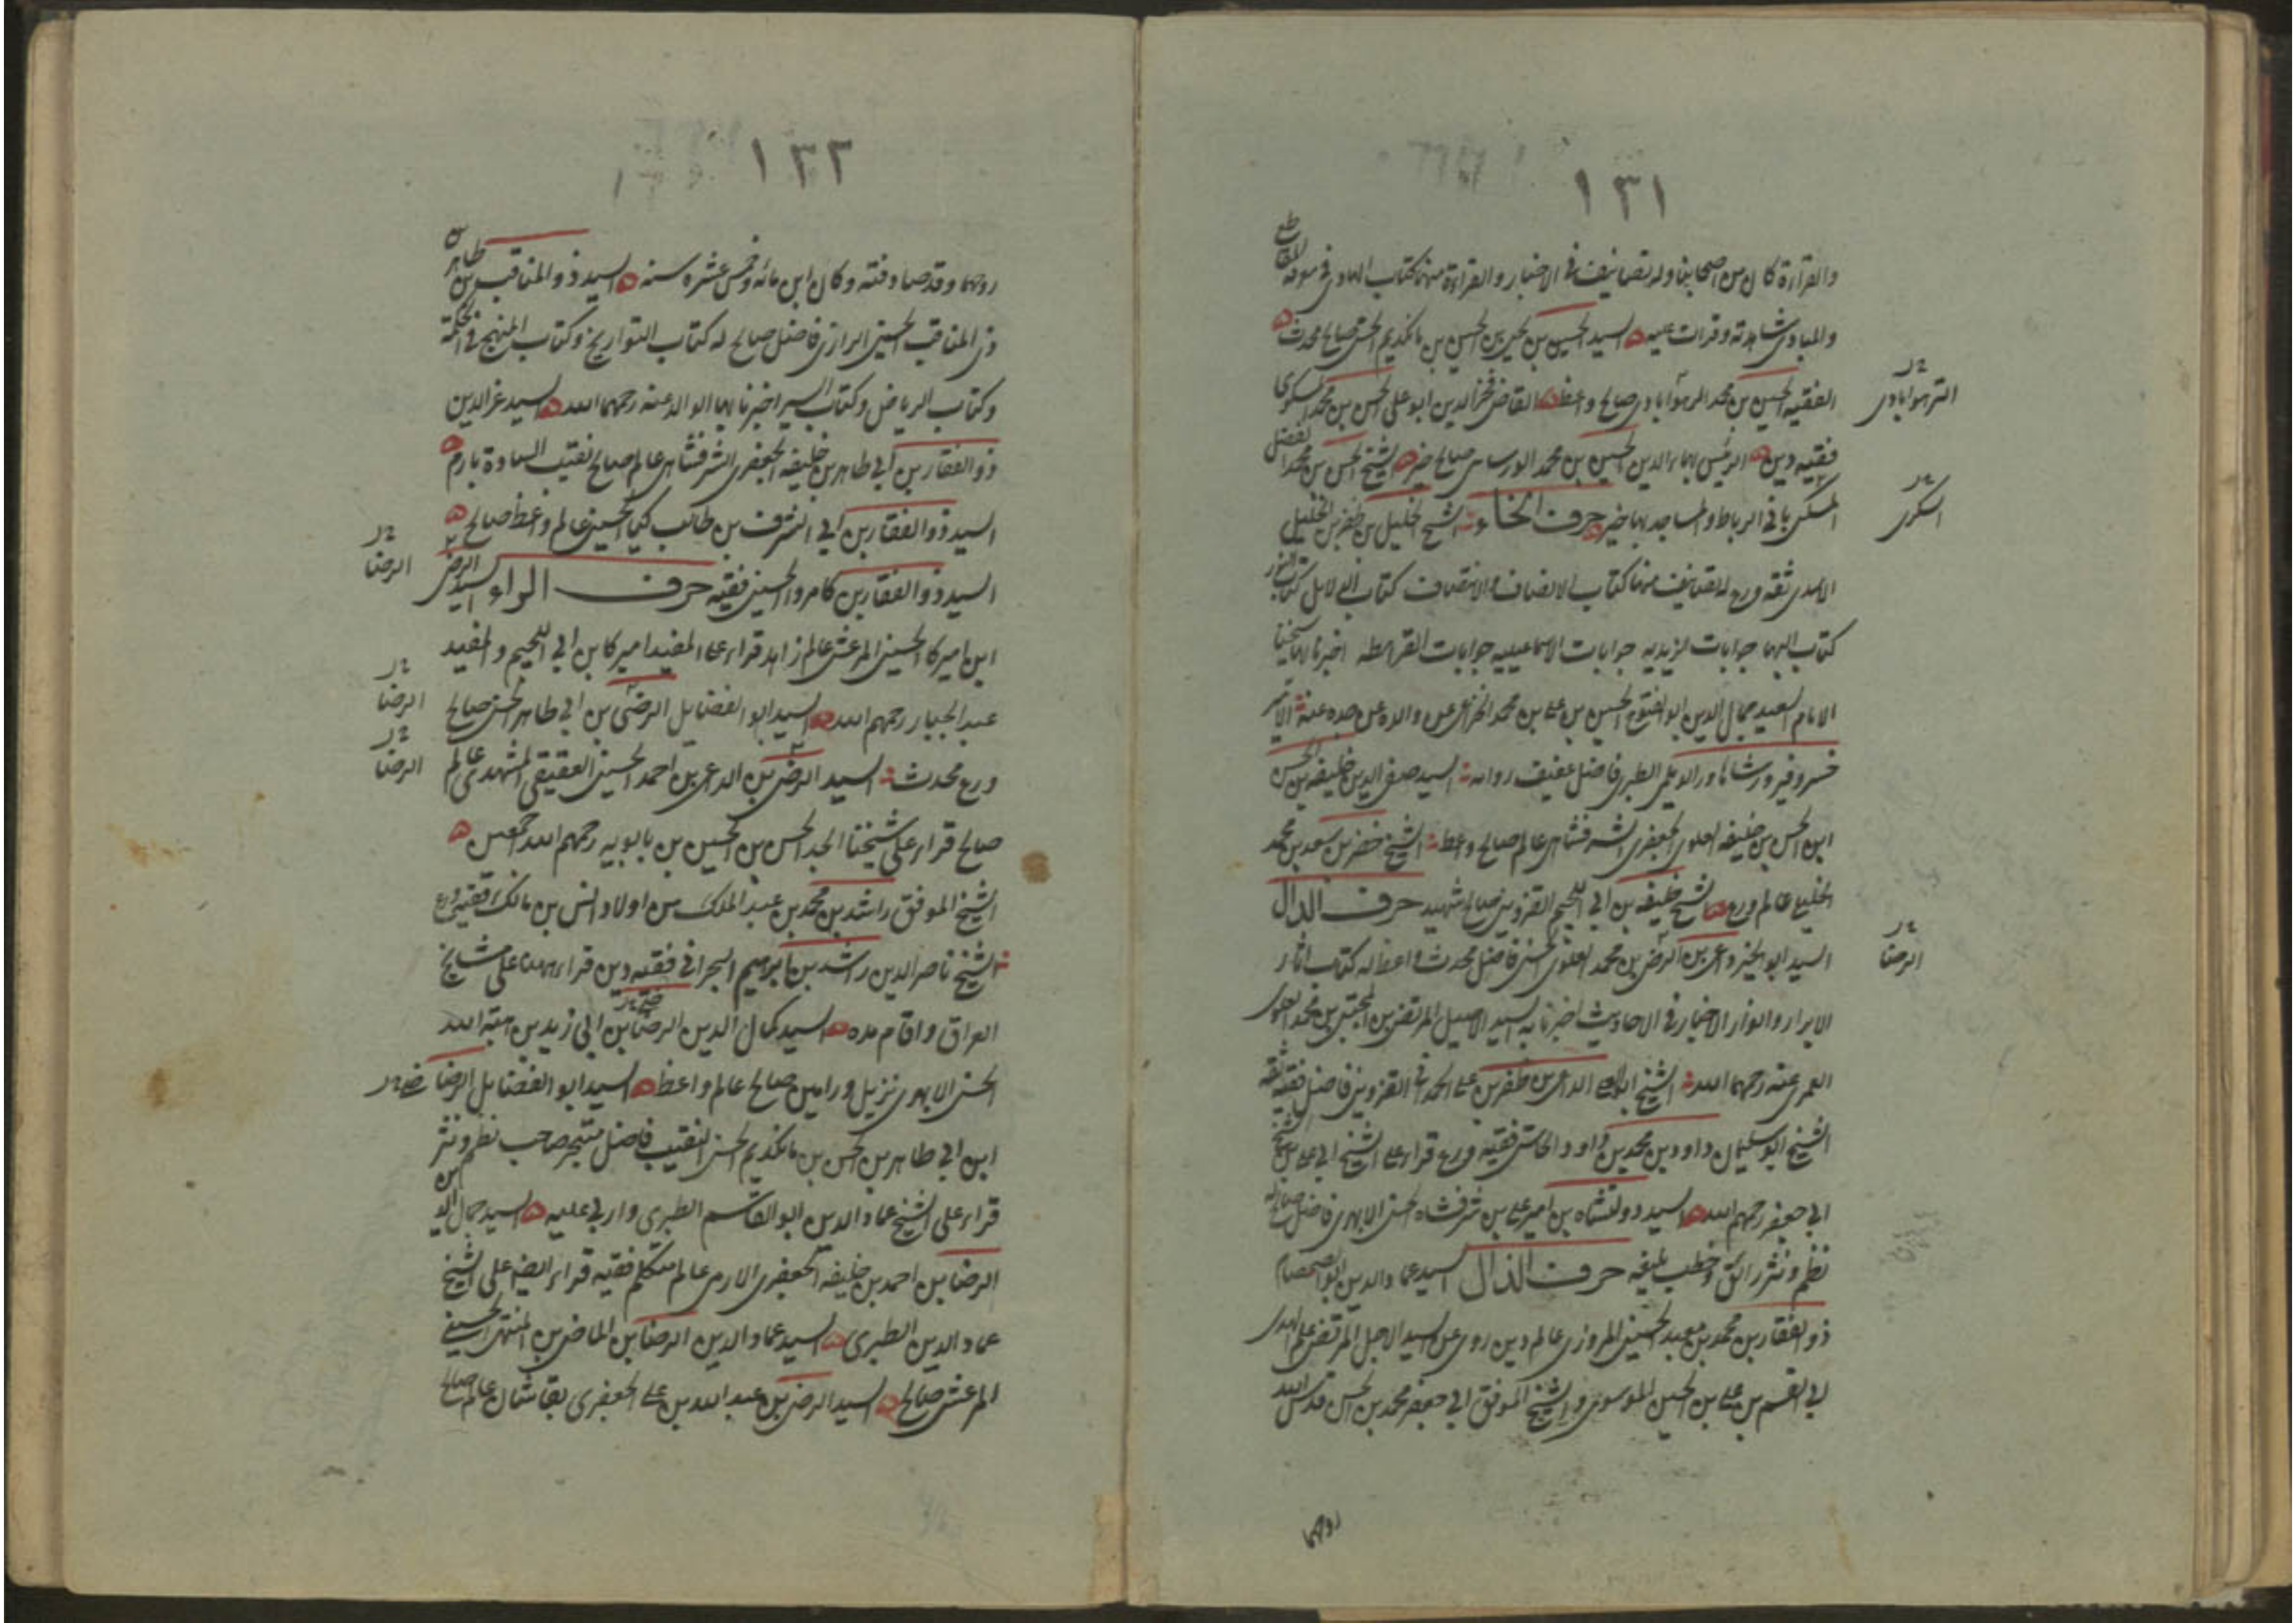 ١٣١
والقراءة كان من اصحابنا وله تصانيف في الاخبار والقراءة منها كتاب الهادي في معرفة المقاطع
والمبادي شاهدته وقرات عليه السيد الحسين بن يحيى بن الحسين بن مانكديم الحسني صالح محدث
الفقيه الحسين بن محمد الرهوآبادي صالح واعظ القاضي فخر الدين ابو علي الحسن بن محمد
الترهوآبادي
فقيه دين الرئيس بهاء الدين الحسين بن محمد الورساهي صالح خير الشيخ الحسن بن محمد الفضل
المسكني بافي الرباط والمساجد بها خير حرف الخاء الشيخ الخليل بن ظفر بن الخليل
السكري
الاسدي ثقة ورع له تصانيف منها كتاب الانصاف والانتصاف كتاب الدلايل كتاب النور
كتاب البهاء جوابات الزيديه جوابات الاسماعيليه جوابات القرامطه اخبرنا بها شيخنا
الامام السعيد جمال الدين ابو الفتوح الحسين بن علي بن محمد الخزاعي عن والده عن جده عنه الامير
خسرو فيروز شاهاور الديلمي الطبري فاضل عفيف السيد صفي الدين خليفه بن الحسن
ابن الحسن بن خليفه العلوي الجعفري الشرفشاهي عالم صالح واعظ الشيخ خضر بن سعد بن محمد
الخليعي عالم ورع الشيخ خليفه بن ابي اللجيم القزويني صالح شهيد حرف الدال
السيد ابو الخير داعي بن الرضي بن محمد العلوي الحسني فاضل محدث واعظ له كتاب اثار
الرضا
الابرار وانوار الاخبار في الاحاديث اخبرنا به السيد الاصيل المرتضى بن المجتبى بن محمد العلوي
العمري عنه رحمهما الله الشيخ الداعي بن ظفر بن علي الحمداني القزويني فاضل فقيه ثقه
الشيخ ابو سليمان داود بن محمد بن داود الحاسي فقيه ورع قراء على الشيخ ابي علي بن الشيخ
ابي جعفر رحمهم الله السيد دولتشاه بن امير علي بن شرفشاه الحسني الابهري فاضل صالح له
نظم ونثر رائق وخطب بليغه حرف الذال السيد عماد الدين ابو الصمصام
ذو الفقار بن محمد بن معبد الحسيني المروزي عالم دين روى عن السيد الاجل المرتضى علم الهدى
ابي القسم بن علي بن الحسين الموسوي والشيخ الموفق ابي جعفر محمد بن الحسن قدس الله
روحهما
١٣٢
روحهما وقد صادفته وكان ابن مائه وخمس عشره سنه السيد ذو المناقب بن طاهر بن
ذي المناقب الحسيني الرازي فاضل صالح له كتاب التواريخ وكتاب المنهج في الحكمة
وكتاب الرياض وكتاب السير اخبرنا بها الوالد عنه رحمهما الله السيد عز الدين
ذو الفقار بن ابي طاهر بن خليفه الجعفري الشرفشاهي عالم صالح نقيب السادة بارم
السيد ذو الفقار بن ابي الشرف بن طالب كيا الحسيني عالم واعظ صالح
السيد ذو الفقار بن كامروا الحسيني فقيه حرف الراء السيد الرضي
الرضا
ابن اميركا الحسيني المرعشي عالم زاهد قراء على المفيد اميركا بن ابي اللجيم والمفيد
عبد الجبار رحمهم الله السيد ابو الفضايل الرضي بن ابي طاهر الحسني صالح
الرضا
ورع محدث السيد الرضي بن الداعي بن احمد الحسيني العقيقي المشهدي عالم
الرضا
صالح قراء على شيخنا الجد الحسن بن الحسين بن بابويه رحمهم الله جمعين
الشيخ الموفق راشد بن محمد بن عبد الملك من اولاد انس بن مالك فقيه ورع
الشيخ ناصر الدين راشد بن ابراهيم البحراني فقيه دين قراء ههنا على مشايخ
العراق واقام مده السيد كمال الدين الرضا بن ابي زيد بن هبة الله
الحسني الابهري نزيل ورامين صالح عالم واعظ السيد ابو الفضايل الرضا
ابن ابي طاهر بن الحسن بن مانكديم الحسني النقيب فاضل متبحر صاحب نظم ونثر
قراء على الشيخ عماد الدين ابو القاسم الطبري واربى عليه السيد جمال الدين
الرضا بن احمد بن خليفه الجعفري الارمي عالم متكلم فقيه قراء ايضا على الشيخ
عماد الدين الطبري السيد عماد الدين الرضا بن الماضي بن المنتهى الحسيني
المرعشي صالح السيد الرضي بن عبد الله بن علي الجعفري بقاشان عالم صالح